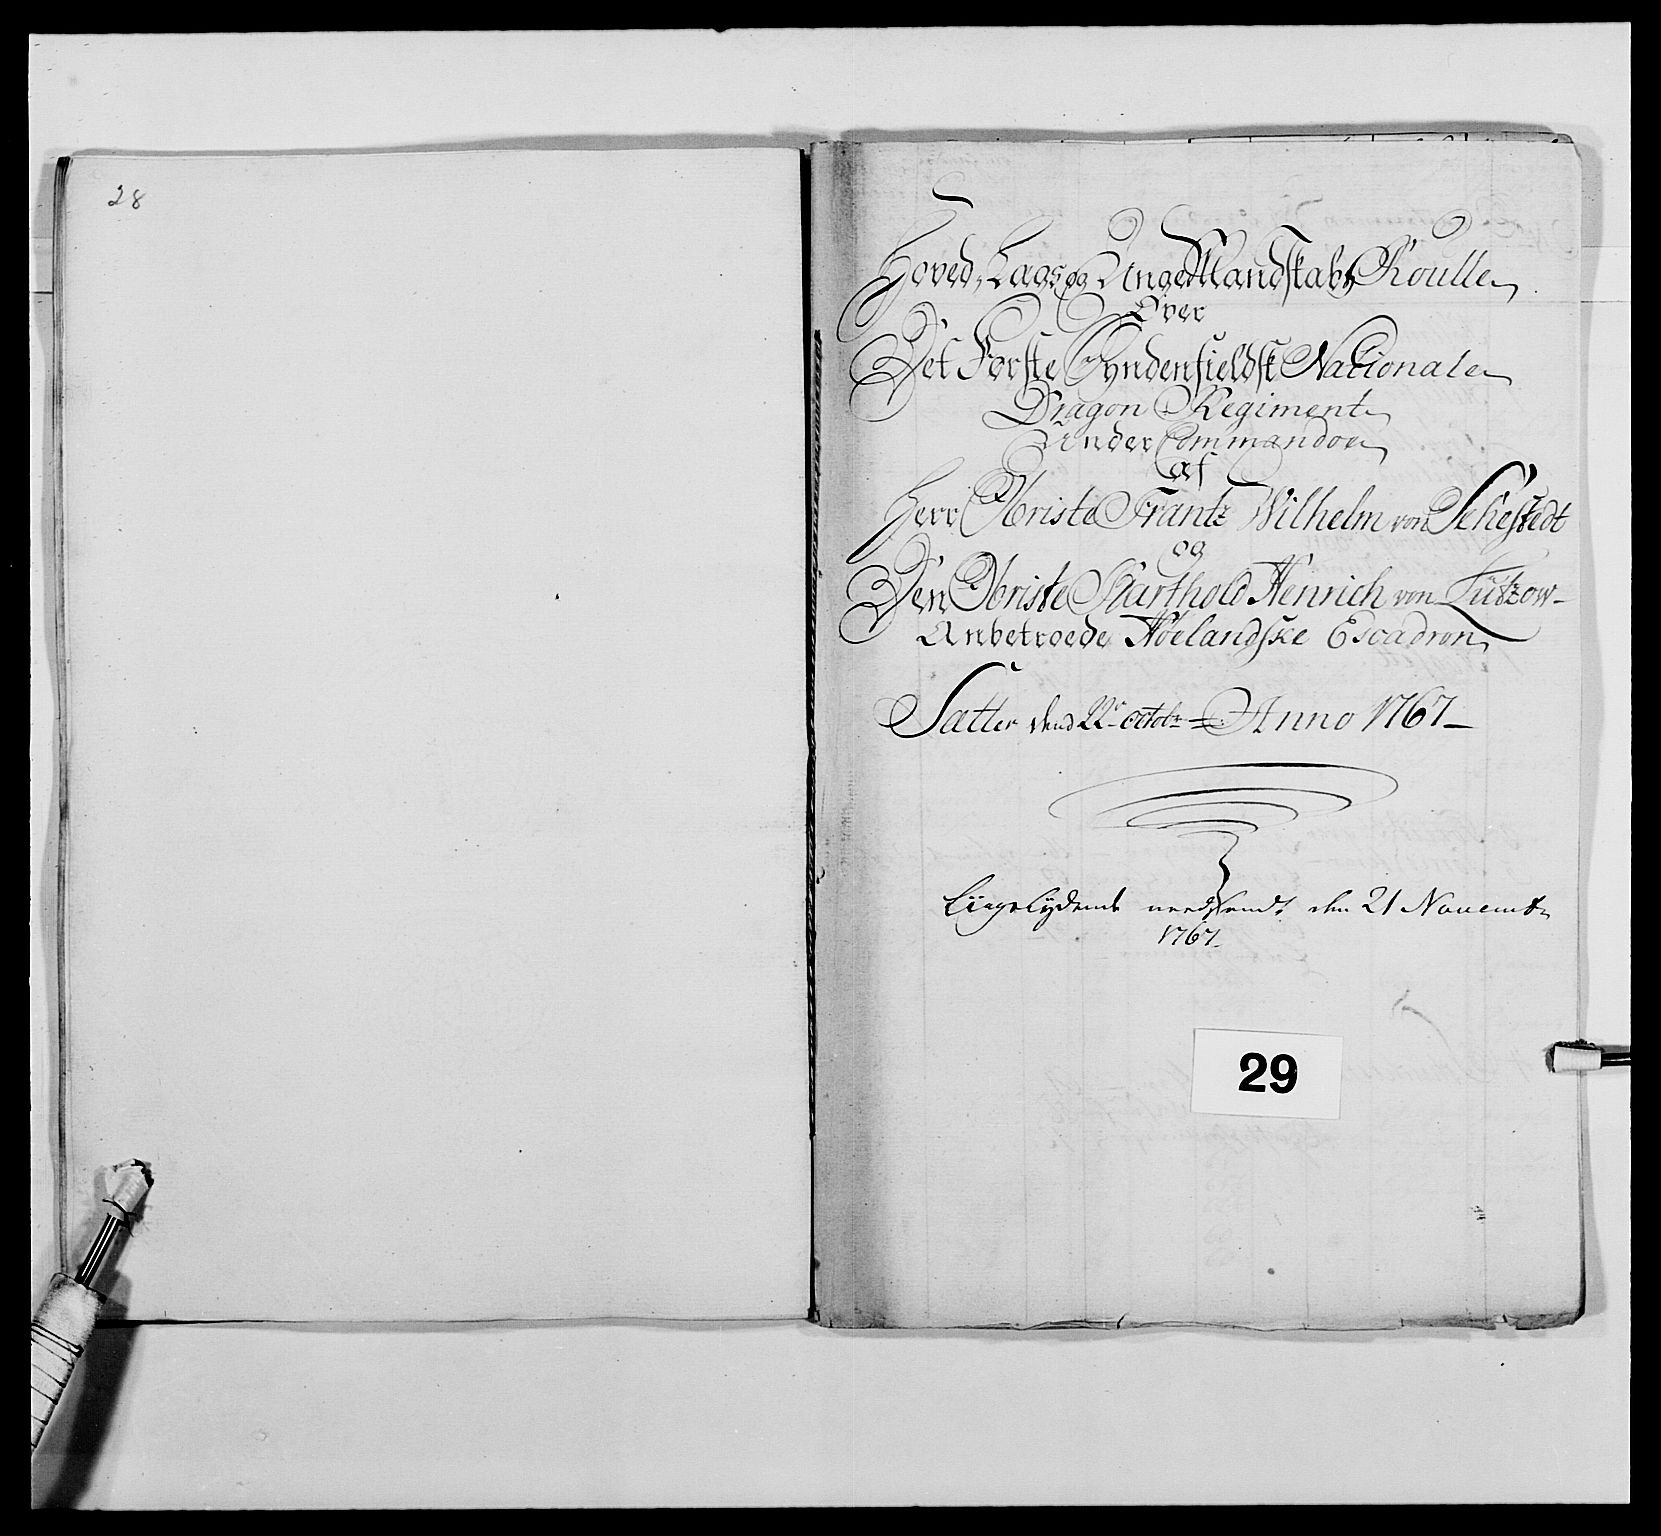 28
Hoved, Laegs og Unge Mandskabs Roulle
Over
Det Første Syndenfieldsk Nationale
Dragon Regiment
Under Commandoe
af
Herr Obriste Frantz Wilhelm von Sehestedt
og
Den Obriste Barthold Henrich von Lützow
Anbetroede Høelandske Escadron
Sætter dend 22 octobr Anno 1767
Liigelydende needsendt den 21 Novembr
1767
29